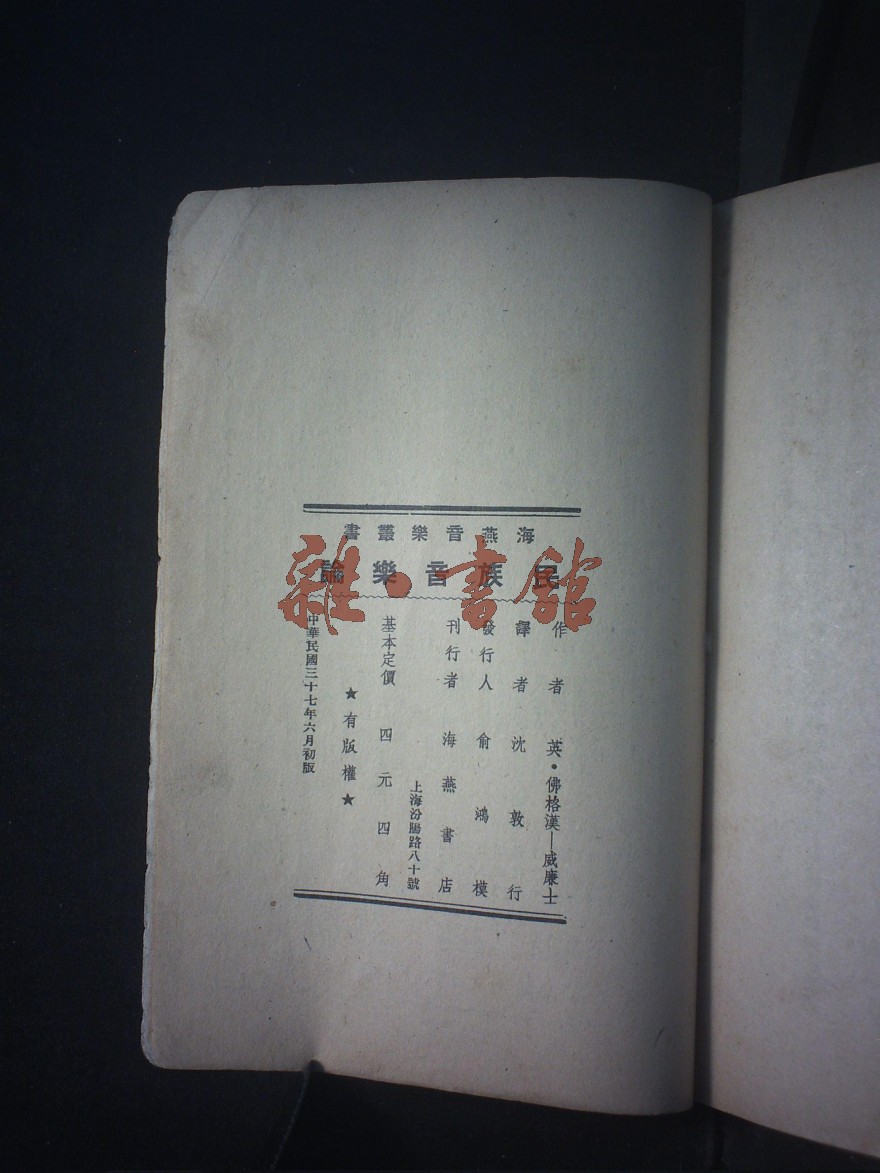 海燕音樂叢書
民族音樂論
作者 英·佛格漢—威廉士
譯者 沈敦行
發行人 俞鴻模
刊行者 海燕書店
上海汾陽路八十號
基本定價 四元四角
★有版權★
中華民國三十七年六月初版
雜·書館